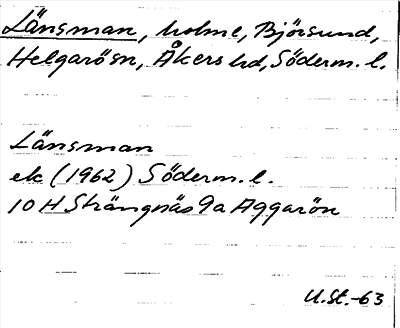 Länsman, holme, Björsund,
Helgarösn, Åkers hd, Söderm. l.
Länsman
ek (1962) Söderm. l.
10 H Strängnäs 9a Aggarön
U.St.-63